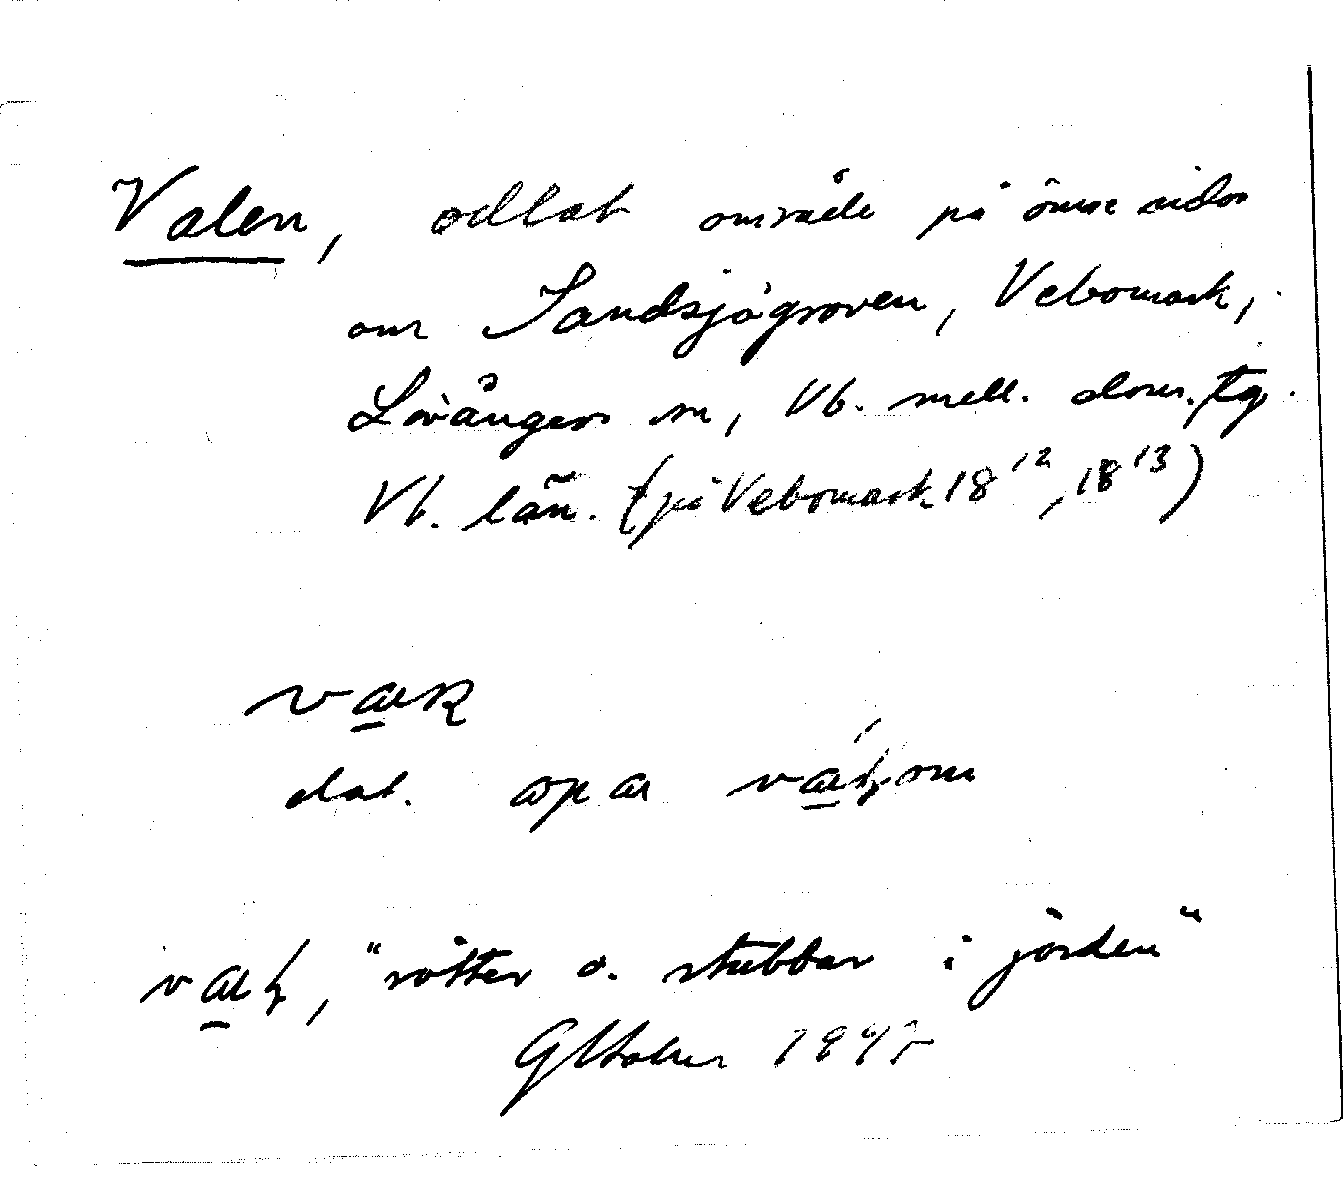 Valen, odlat område på ömse sidor
om Sandsjögroven, Vebomark,
Lövångers sn, Vb. mell. doms. tg.
Vb. län. (på Vebomark 18¹², 18¹³)
dat.
"rötter o. stubbar i jorden"